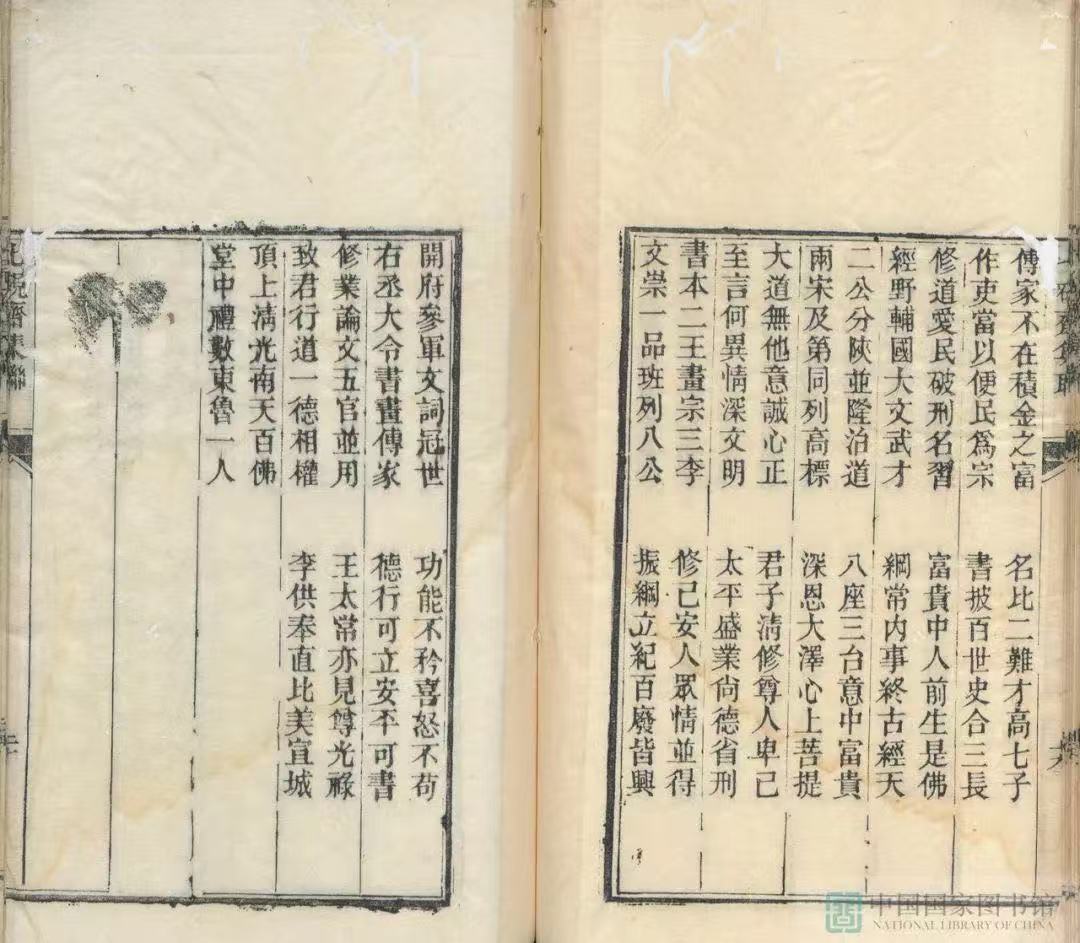 傳家不在積金之富 名比二難才高七子
作吏當以便民爲宗 書披百世史合三長
修道愛民破刑名習 富貴中人前生是佛
經野輔國大文武才 綱常内事終古經天
二公分陝並隆治道 八座三台意中富貴
兩宋及第同列高標 深恩大澤心上菩提
大道無他意誠心正 君子清修尊人卑己
至言何異情深文明 太平盛業尚德省刑
書本二王畫宗三李 修己安人眾情並得
文崇一品班列八公 振綱立紀百廢皆興
開府參軍文詞冠世 功能不矜喜怒不苟
右丞大令書畫傳家 德行可立安平可書
修業論文五官並用 王太常亦見尊光祿
致君行道一德相權 李供奉直比美宣城
頂上清光南天百佛
堂中禮數東魯一人
中国国家图书馆
NATIONAL LIBRARY OF CHINA